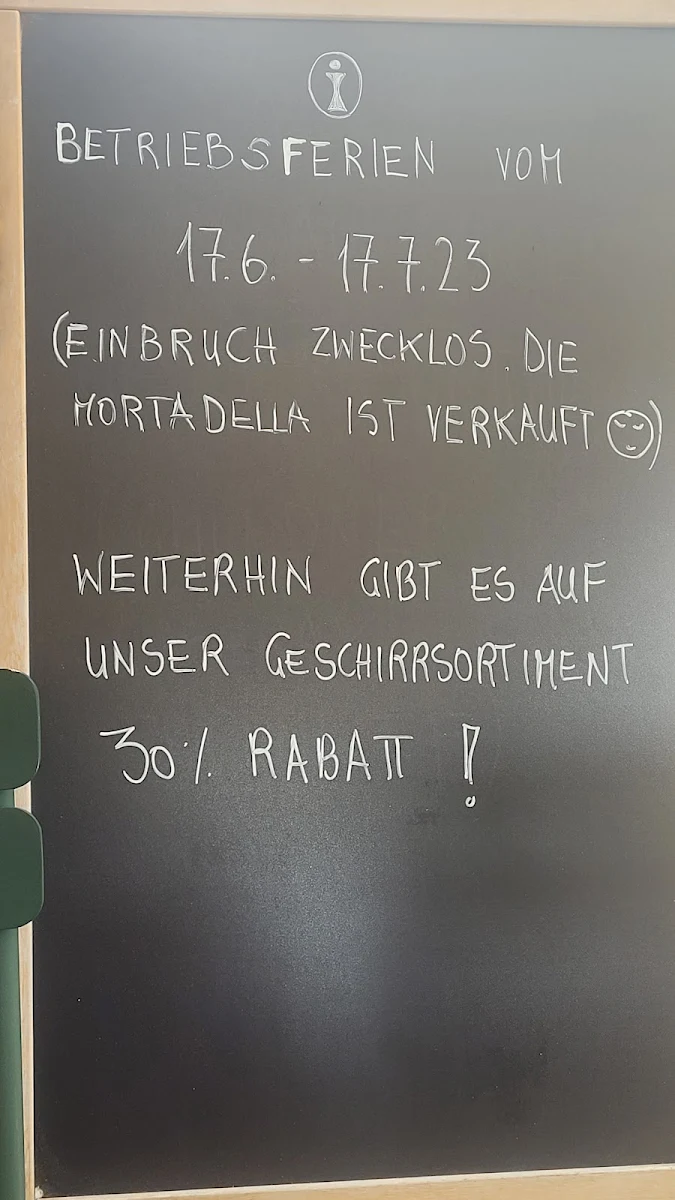 i
BETRIEBSFERIEN VOM
17.6. - 17.7.23
(EINBRUCH ZWECKLOS. DIE
MORTADELLA IST VERKAUFT ☺)
WEITERHIN GIBT ES AUF
UNSER GESCHIRRSORTIMENT
30% RABATT !